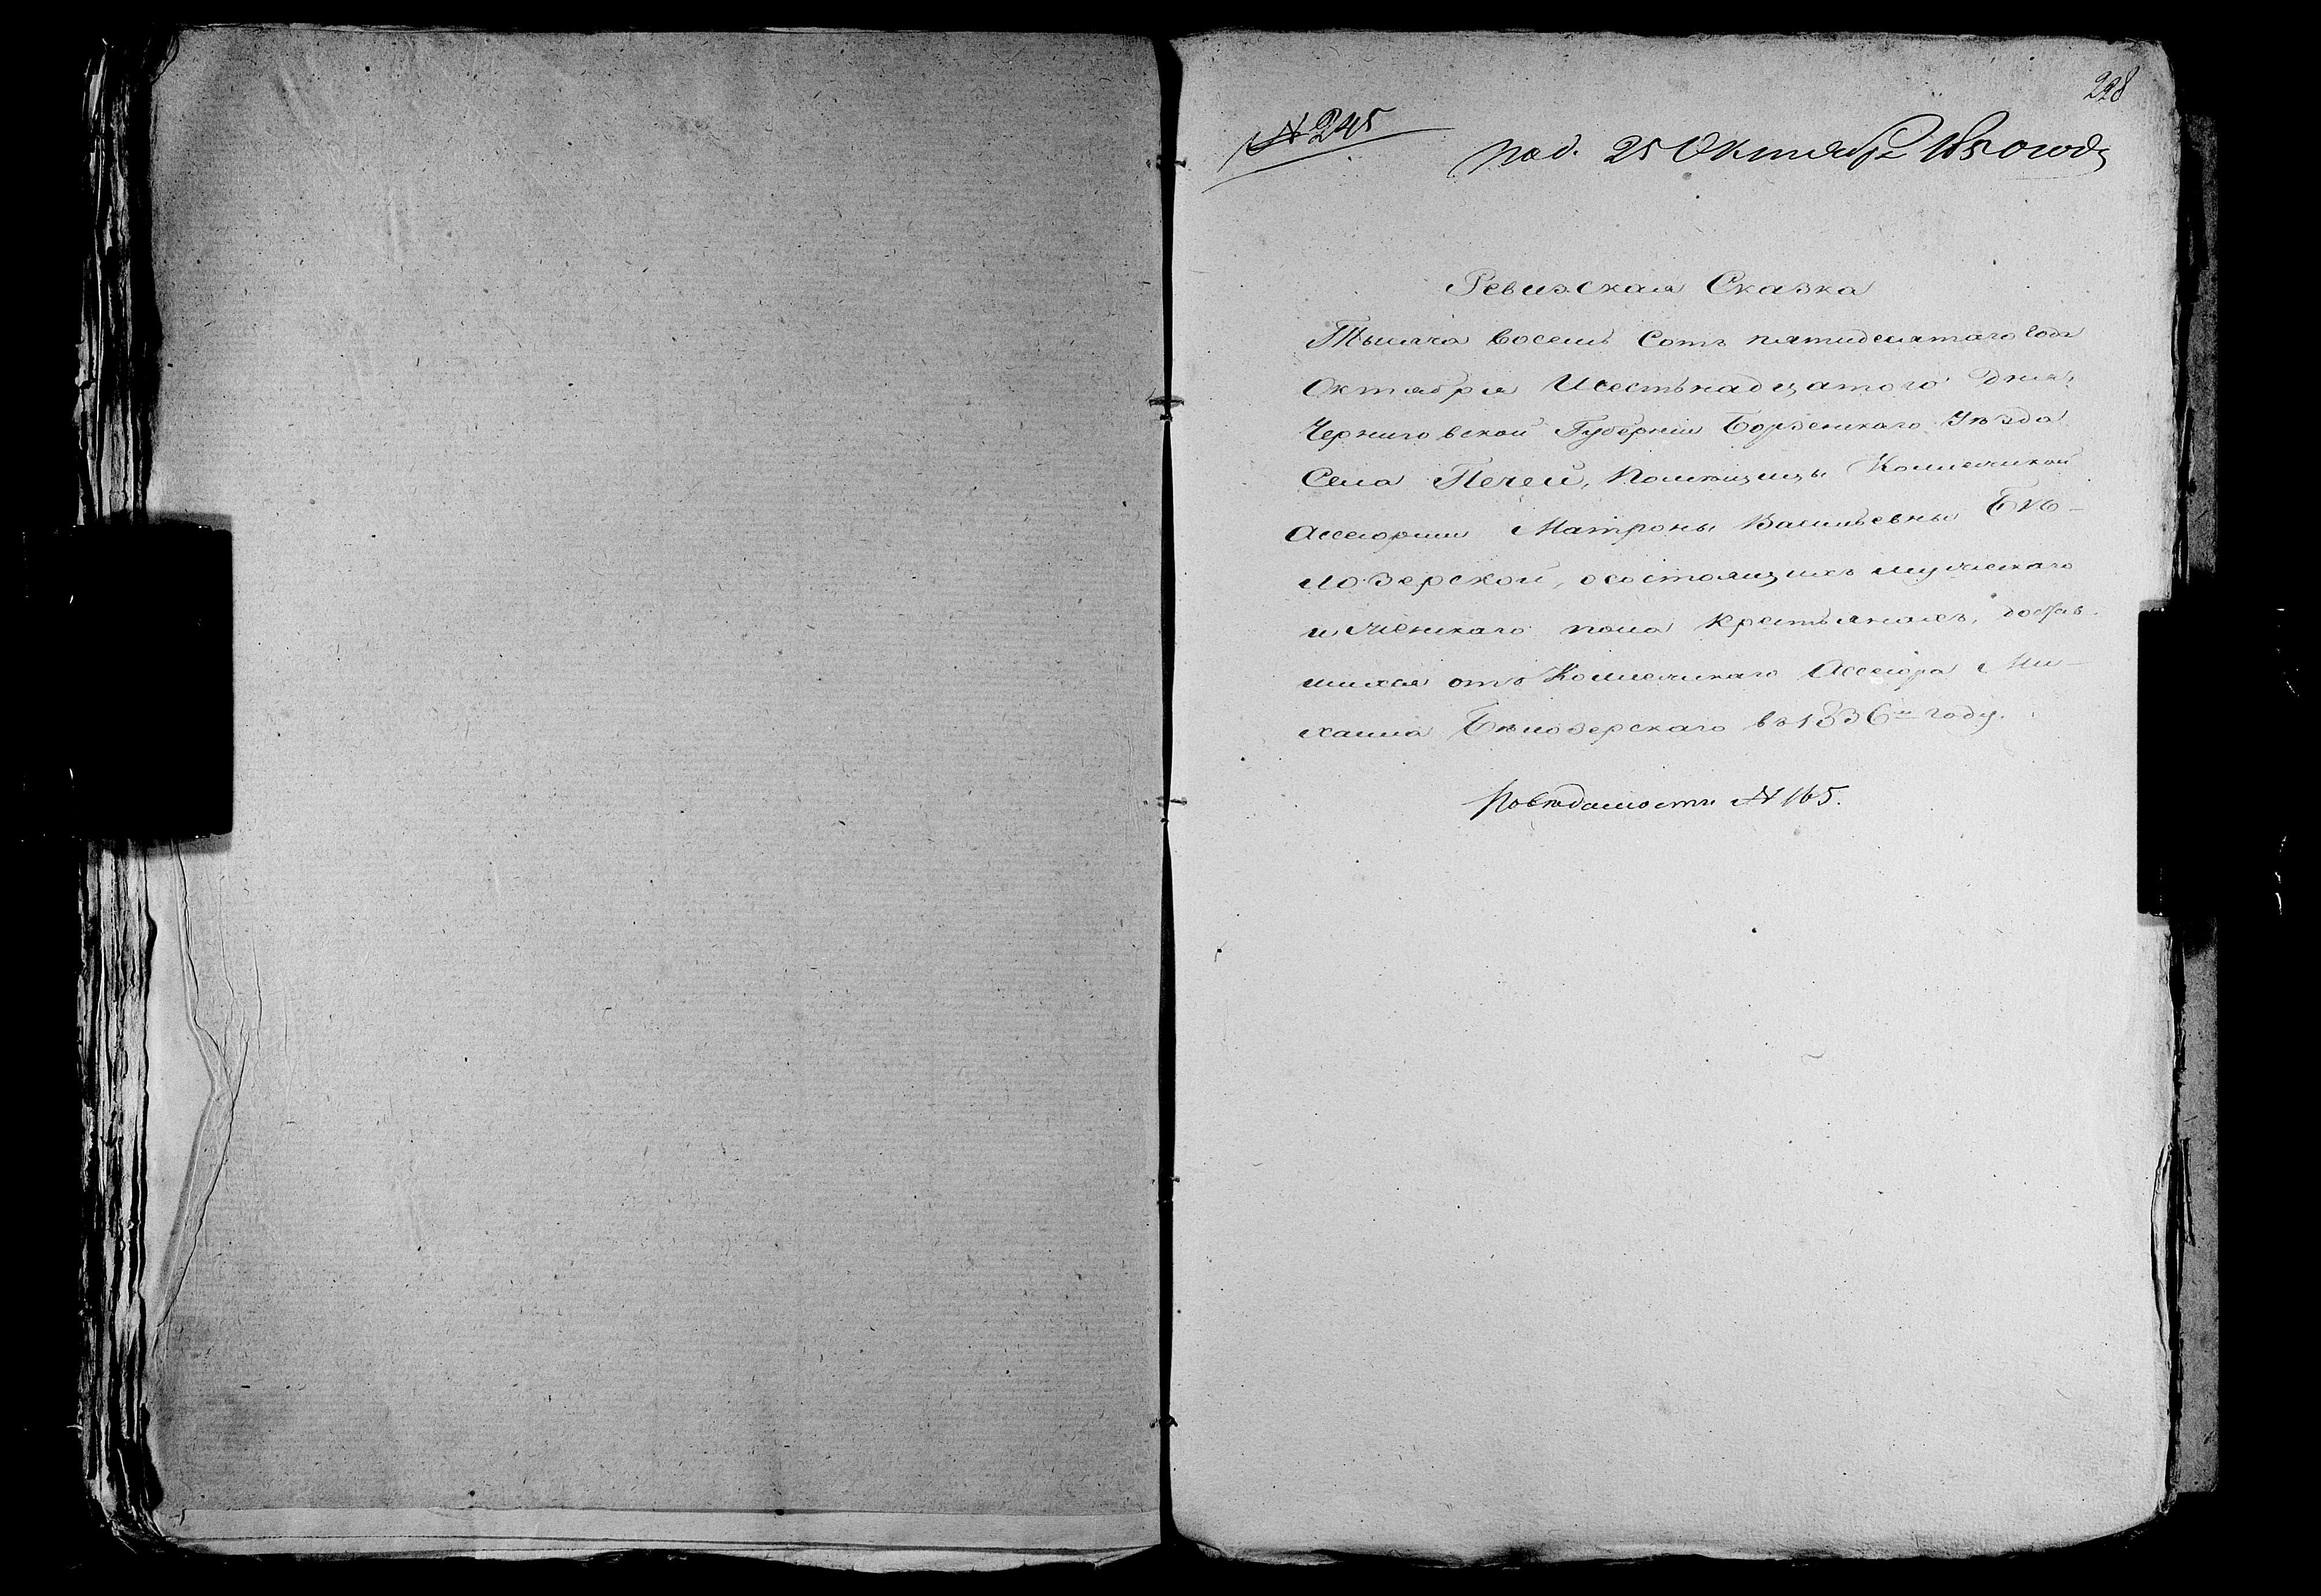 228
№ 245
под. 25 Октября 1850 года
Ревизская Сказка
Тысяча восемь Сотъ пятидесятаго года
Октября Шестьнадцатого дня,
Черниговской Губерніи Борзенскаго Уѣзда
Села Печей, помѣщицы Коллежской
Ассесорши Матроны Васильевны Бѣ-
лозерской, о состоящихъ мужескаго
и женскаго пола крестьянахъ, достав-
шихся отъ Коллежскаго Ассесора Ми-
хаила Бѣлозерскаго въ 1836м году.
По вѣдомости № 165.